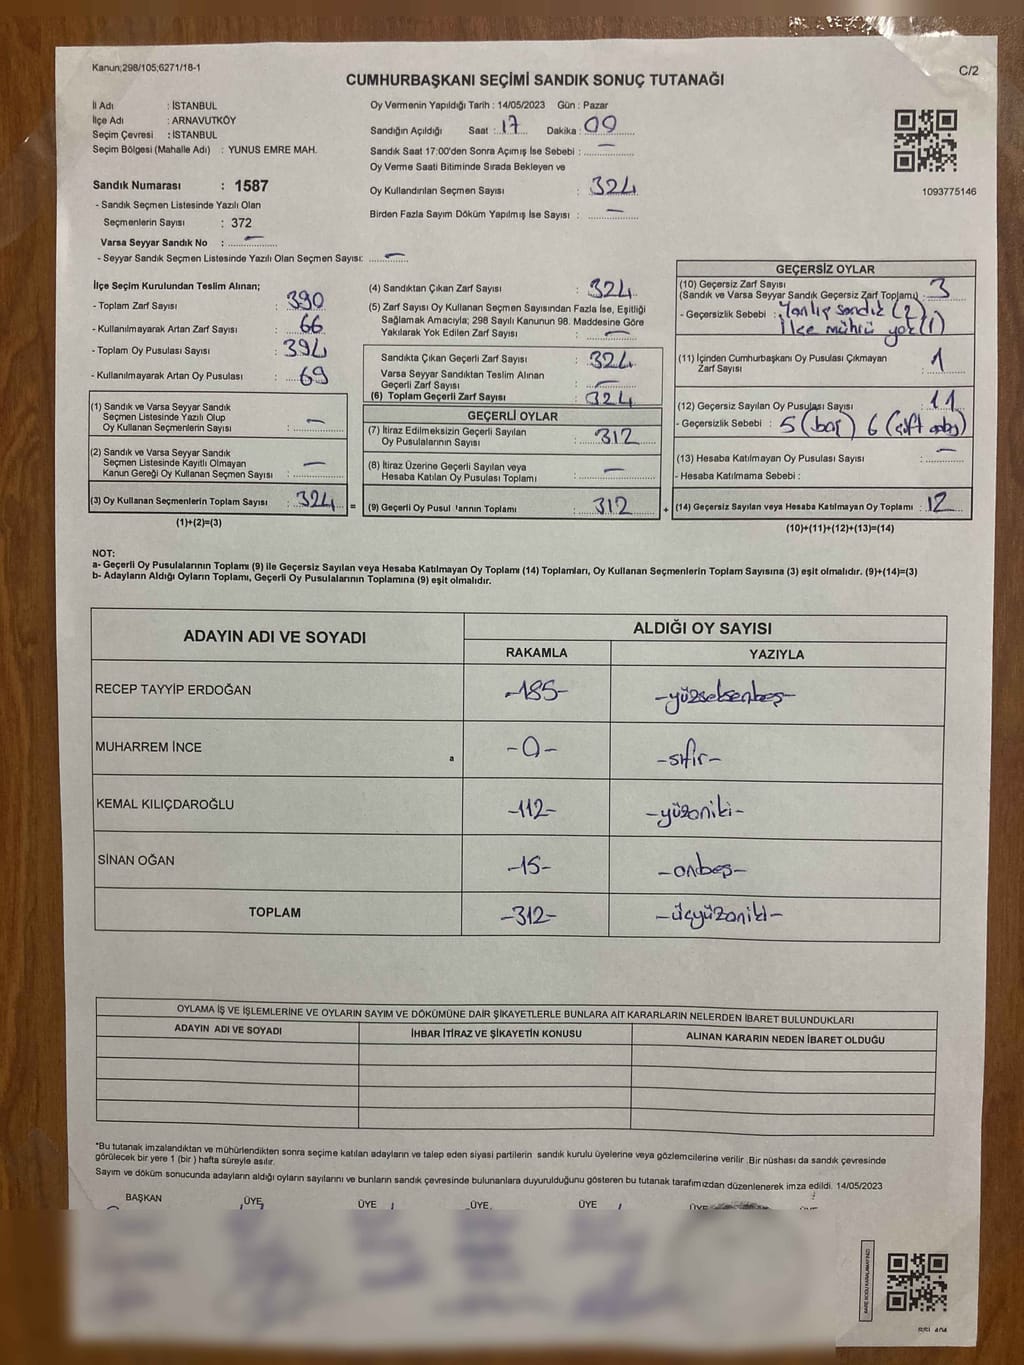 Kanun;298/105;6271/18-1
C/2
CUMHURBAŞKANI SEÇİMİ SANDIK SONUÇ TUTANAĞI
İl Adı : İSTANBUL
İlçe Adı : ARNAVUTKÖY
Seçim Çevresi : İSTANBUL
Seçim Bölgesi (Mahalle Adı) : YUNUS EMRE MAH.
Sandık Numarası : 1587
- Sandık Seçmen Listesinde Yazılı Olan
Seçmenlerin Sayısı : 372
Varsa Seyyar Sandık No : –
- Seyyar Sandık Seçmen Listesinde Yazılı Olan Seçmen Sayısı: –
Oy Vermenin Yapıldığı Tarih : 14/05/2023 Gün : Pazar
Sandığın Açıldığı Saat : 17 Dakika : 09
Sandık Saat 17:00'den Sonra Açımış İse Sebebi : –
Oy Verme Saati Bitiminde Sırada Bekleyen ve
Oy Kullandırılan Seçmen Sayısı : 324
Birden Fazla Sayım Döküm Yapılmış İse Sayısı : –
1093775146
İlçe Seçim Kurulundan Teslim Alınan;
- Toplam Zarf Sayısı : 390
- Kullanılmayarak Artan Zarf Sayısı : 66
- Toplam Oy Pusulası Sayısı : 394
- Kullanılmayarak Artan Oy Pusulası : 69
(1) Sandık ve Varsa Seyyar Sandık
Seçmen Listesinde Yazılı Olup
Oy Kullanan Seçmenlerin Sayısı : –
(2) Sandık ve Varsa Seyyar Sandık
Seçmen Listesinde Kayıtlı Olmayan
Kanun Gereği Oy Kullanan Seçmen Sayısı : –
(3) Oy Kullanan Seçmenlerin Toplam Sayısı : 324 =
(1)+(2)=(3)
(4) Sandıktan Çıkan Zarf Sayısı : 324
(5) Zarf Sayısı Oy Kullanan Seçmen Sayısından Fazla İse, Eşitliği
Sağlamak Amacıyla; 298 Sayılı Kanunun 98. Maddesine Göre
Yakılarak Yok Edilen Zarf Sayısı : –
Sandıkta Çıkan Geçerli Zarf Sayısı : 324
Varsa Seyyar Sandıktan Teslim Alınan
Geçerli Zarf Sayısı : –
(6) Toplam Geçerli Zarf Sayısı : 324
GEÇERLİ OYLAR
(7) İtiraz Edilmeksizin Geçerli Sayılan
Oy Pusulalarının Sayısı : 312
(8) İtiraz Üzerine Geçerli Sayılan veya
Hesaba Katılan Oy Pusulası Toplamı : –
(9) Geçerli Oy Pusul 'arının Toplamı : 312 +
GEÇERSİZ OYLAR
(10) Geçersiz Zarf Sayısı
(Sandık ve Varsa Seyyar Sandık Geçersiz Zarf Toplamı) : 3
- Geçersizlik Sebebi : Yanlış sandık (2)
İlçe mührü yok (1)
(11) İçinden Cumhurbaşkanı Oy Pusulası Çıkmayan
Zarf Sayısı : 1
(12) Geçersiz Sayılan Oy Pusulası Sayısı : 11
- Geçersizlik Sebebi : 5 (boş) 6 (çift
(13) Hesaba Katılmayan Oy Pusulası Sayısı : –
- Hesaba Katılmama Sebebi :
(14) Geçersiz Sayılan veya Hesaba Katılmayan Oy Toplamı : 12
(10)+(11)+(12)+(13)=(14)
NOT:
a- Geçerli Oy Pusulalarının Toplamı (9) ile Geçersiz Sayılan veya Hesaba Katılmayan Oy Toplamı (14) Toplamları, Oy Kullanan Seçmenlerin Toplam Sayısına (3) eşit olmalıdır. (9)+(14)=(3)
b- Adayların Aldığı Oyların Toplamı, Geçerli Oy Pusulalarının Toplamına (9) eşit olmalıdır.
ADAYIN ADI VE SOYADI
ALDIĞI OY SAYISI
RAKAMLA YAZIYLA
RECEP TAYYİP ERDOĞAN -185- -yüzseksenbeş-
MUHARREM İNCE a -0- -sıfır-
KEMAL KILIÇDAROĞLU -112- -yüzoniki-
SİNAN OĞAN -15- -onbeş-
TOPLAM -312- -üçyüzoniki-
OYLAMA İŞ VE İŞLEMLERİNE VE OYLARIN SAYIM VE DÖKÜMÜNE DAİR ŞİKAYETLERLE BUNLARA AİT KARARLARIN NELERDEN İBARET BULUNDUKLARI
ADAYIN ADI VE SOYADI İHBAR İTİRAZ VE ŞİKAYETİN KONUSU ALINAN KARARIN NEDEN İBARET OLDUĞU
*Bu tutanak imzalandıktan ve mühürlendikten sonra seçime katılan adayların ve talep eden siyasi partilerin sandık kurulu üyelerine veya gözlemcilerine verilir .Bir nüshası da sandık çevresinde
görülecek bir yere 1 (bir ) hafta süreyle asılır.
Sayım ve döküm sonucunda adayların aldığı oyların sayılarını ve bunların sandık çevresinde bulunanlara duyurulduğunu gösteren bu tutanak tarafımızdan düzenlenerek imza edildi. 14/05/2023
BAŞKAN ÜYE ÜYE ÜYE ÜYE ÜYE ÜYE